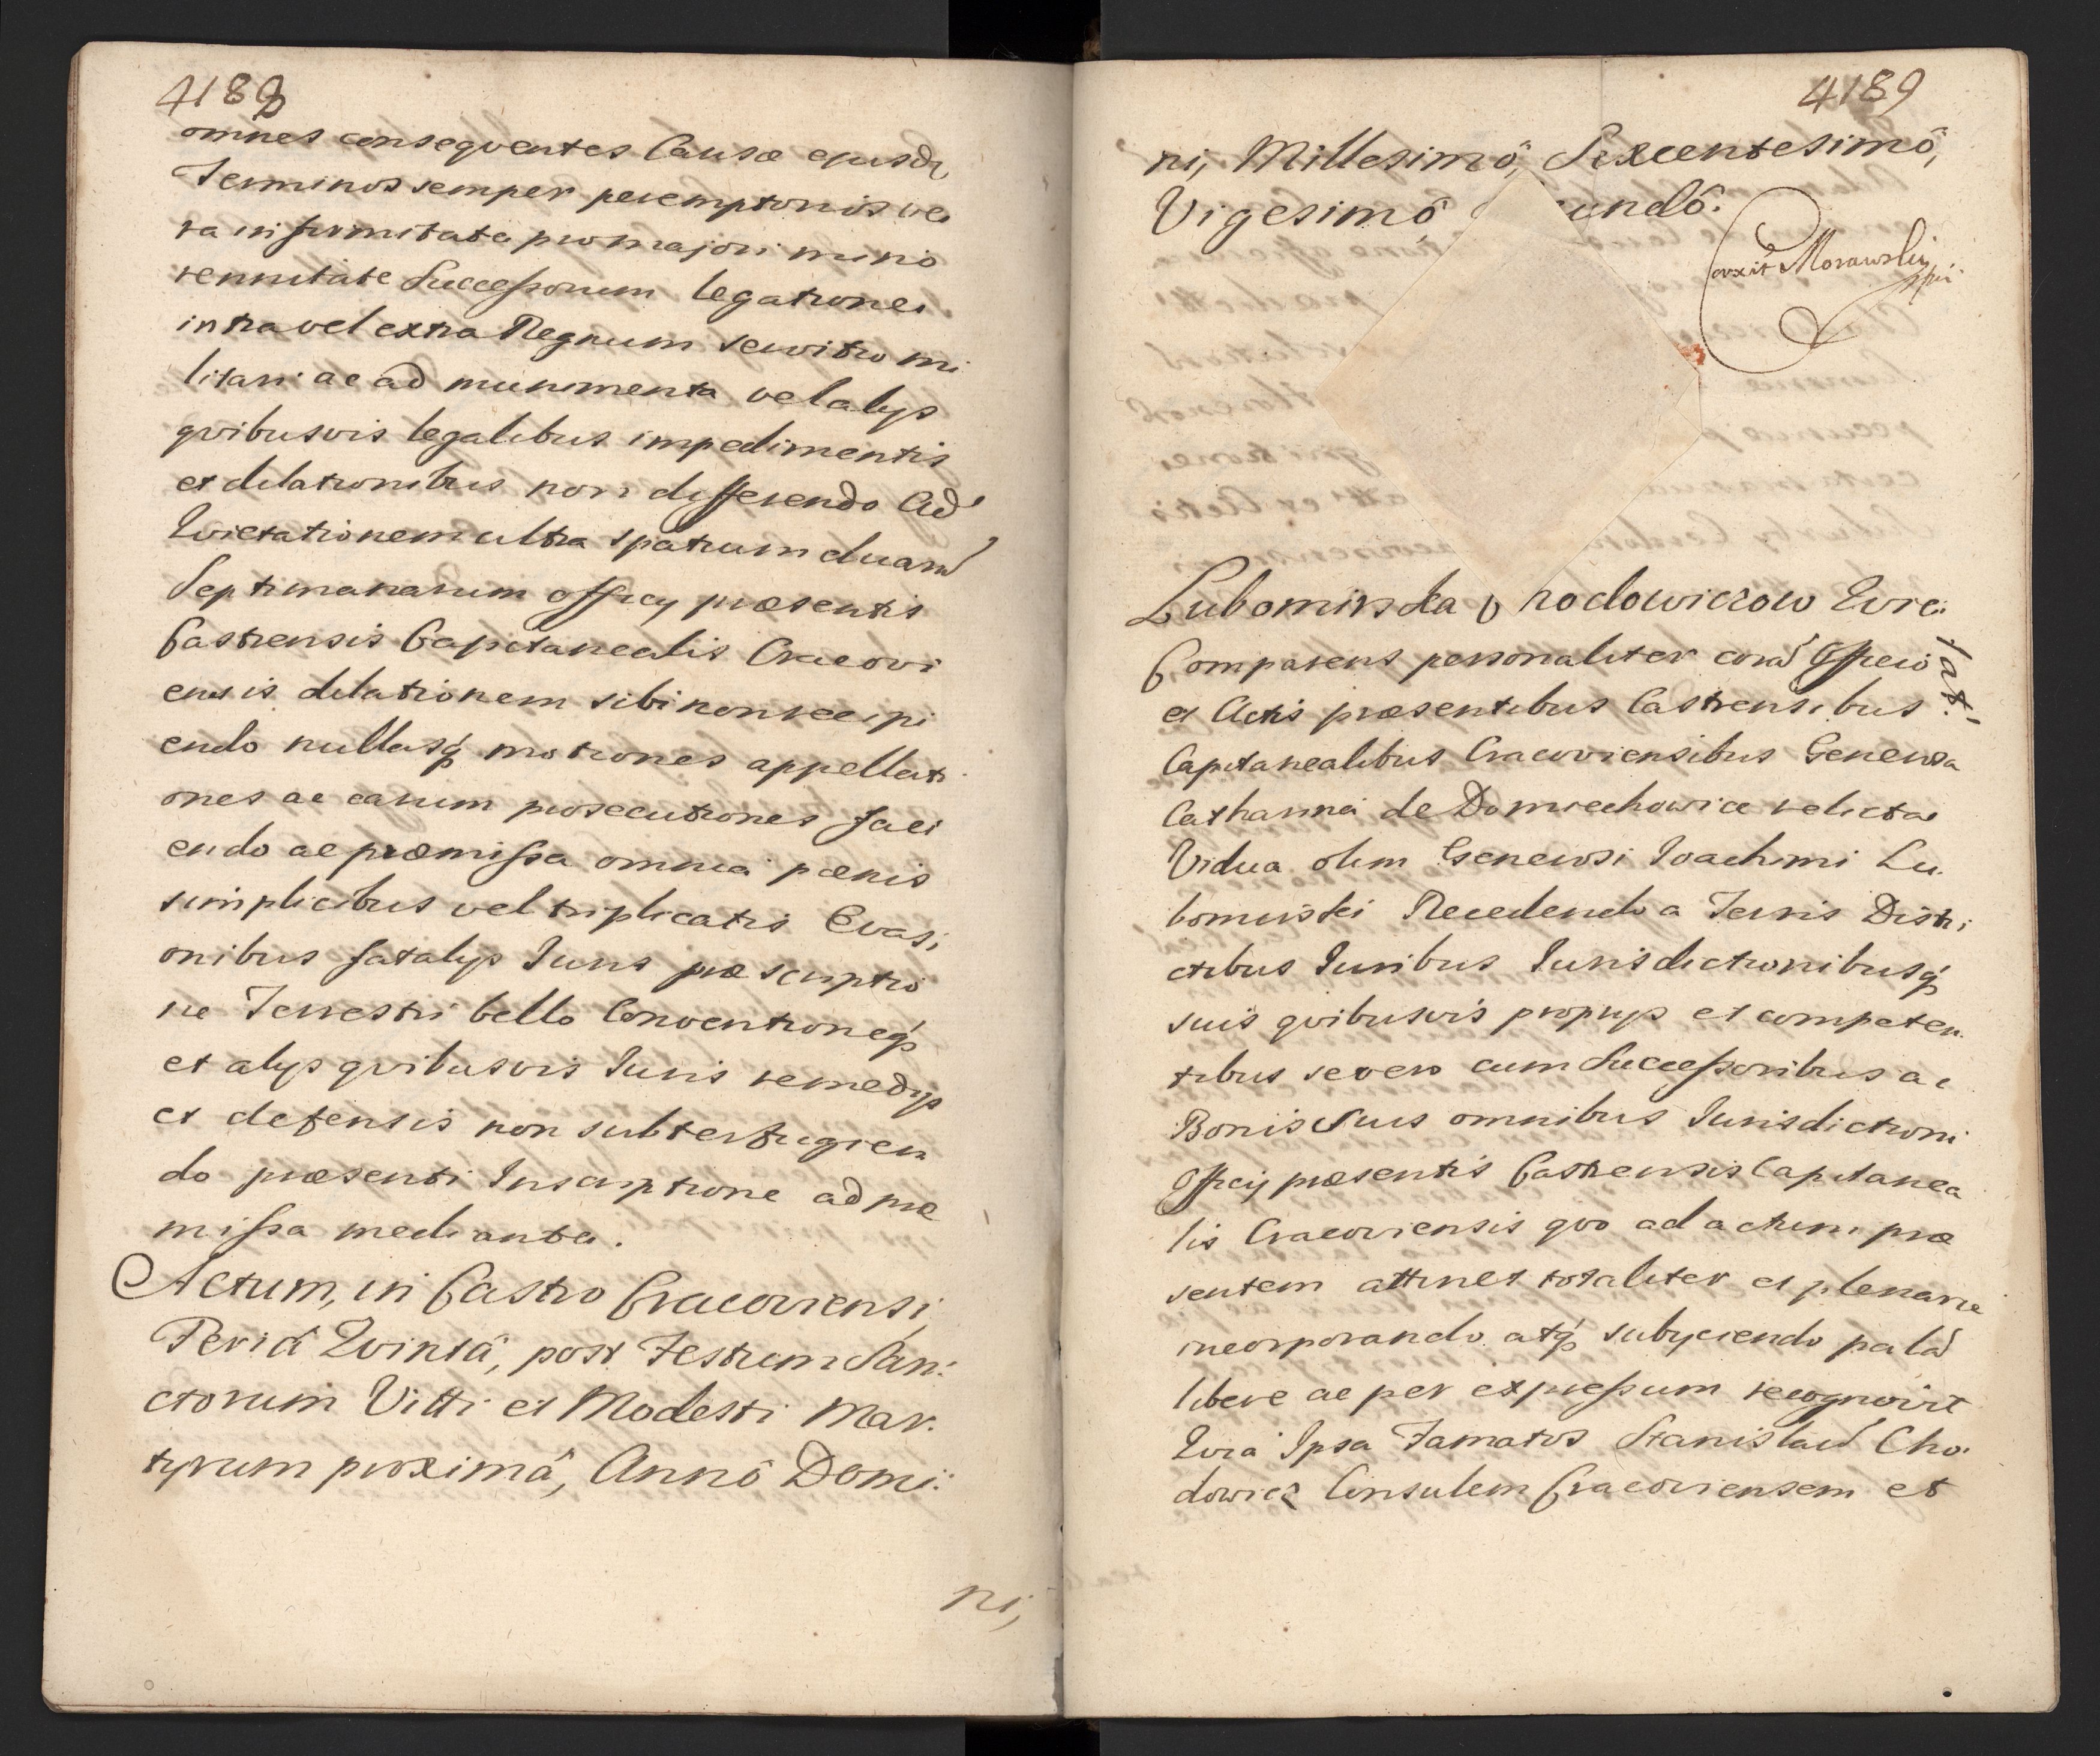 4188
omnes conseqventes Causæ ejusd
Terminos semper peremptorios ve
ra infirmitate pro majori mino
rennitate Successorum legationes
intra vel extra Regnum servitio mi
litari ac ad munimenta vel alys
qvibusvis legalibus impedimentis
et dilationibus non differendo Ad
Evictationem ultra spatium duarū
Septimanarum officy præsentis
Castrensis Capitanealis Cracovi
ensis dilationem sibi non recipi
endo nullasq motiones appellati
ones ac earum prosecutiones faci
endo ac præmissa omnia pænis
simplicibus vel triplicatis Evasi
onibus fatalys Iuris præscriptio
ne Terrestri bello Conventioneq
et alys qvibusvis Iuris remedys
et defensis non subterfugien
do præsenti Inscriptione ad præ
missa mediante.
Actum, in Castro Cracoviensi,
Feriâ Qvintâ, post Festum San:
ctorum Vitti et Modesti Mar.
tyrum proximâ, Annô Domi:
ni,
4189
ni, Millesimô, Sexcentesimô,
Vigesimô undô.
orxit Morawski mpi
Lubomirska Chodowiczow Qvie:
tat.
Comparens personaliter corā Officio
et Actis præsentibus Castrensibus
Capitanealibus Cracoviensibus Generosa
Catharina de Domiechowice relicta
Vidua olim Generosi Ioachimi Lu
bomirski Recedendo a Terris Distri
ctibus Iuribus Iurisdictionibusq
suis qvibusvis proprys et competen
tibus se vero cum Successoribus ac
Bonis Suis omnibus Iurisdictioni
Officy præsentis Castrensis Capitanea
lis Cracoviensis qvo ad actum præ
sentem attinet totaliter et plenarie
incorporando atq subyciendo palā
libere ac per expressum recognovit
Qvia Ipsa Famatos Stanislaū Cho
dowicz Consulem Cracoviensem et